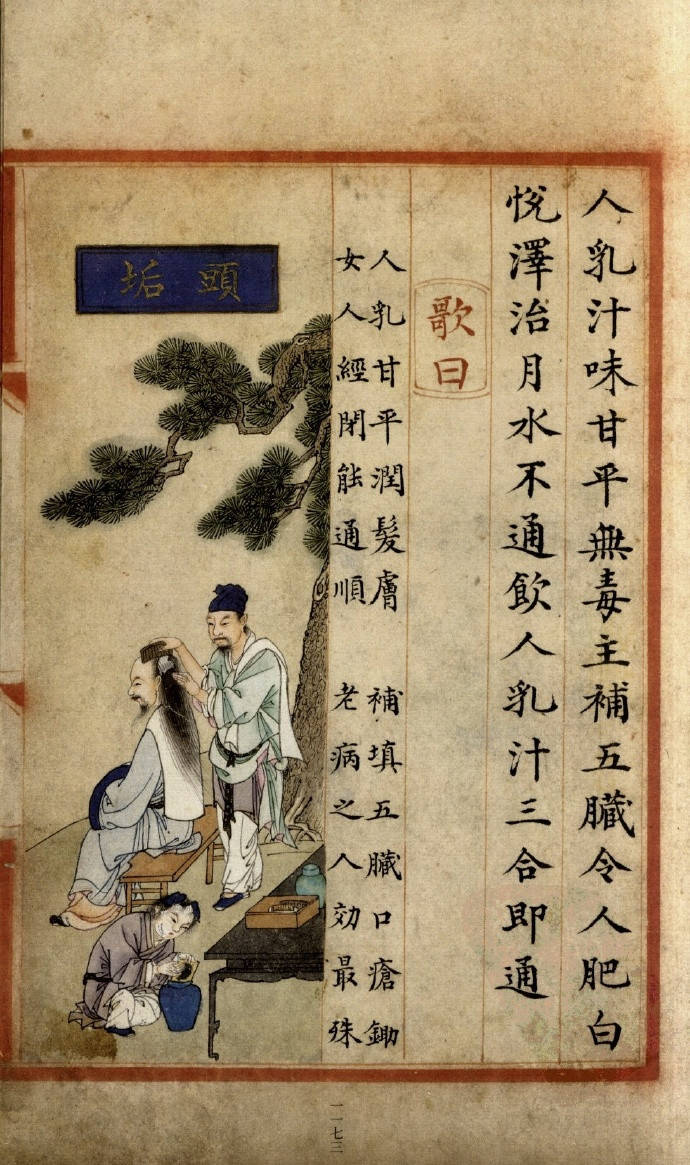 人乳汁味甘平無毒主補五臟令人肥白
悅澤治月水不通飲人乳汁三合即通
歌曰
人乳甘平潤髮膚 補填五臟口瘡鋤
女人經閉能通順 老病之人効最殊
頭垢
一一七三